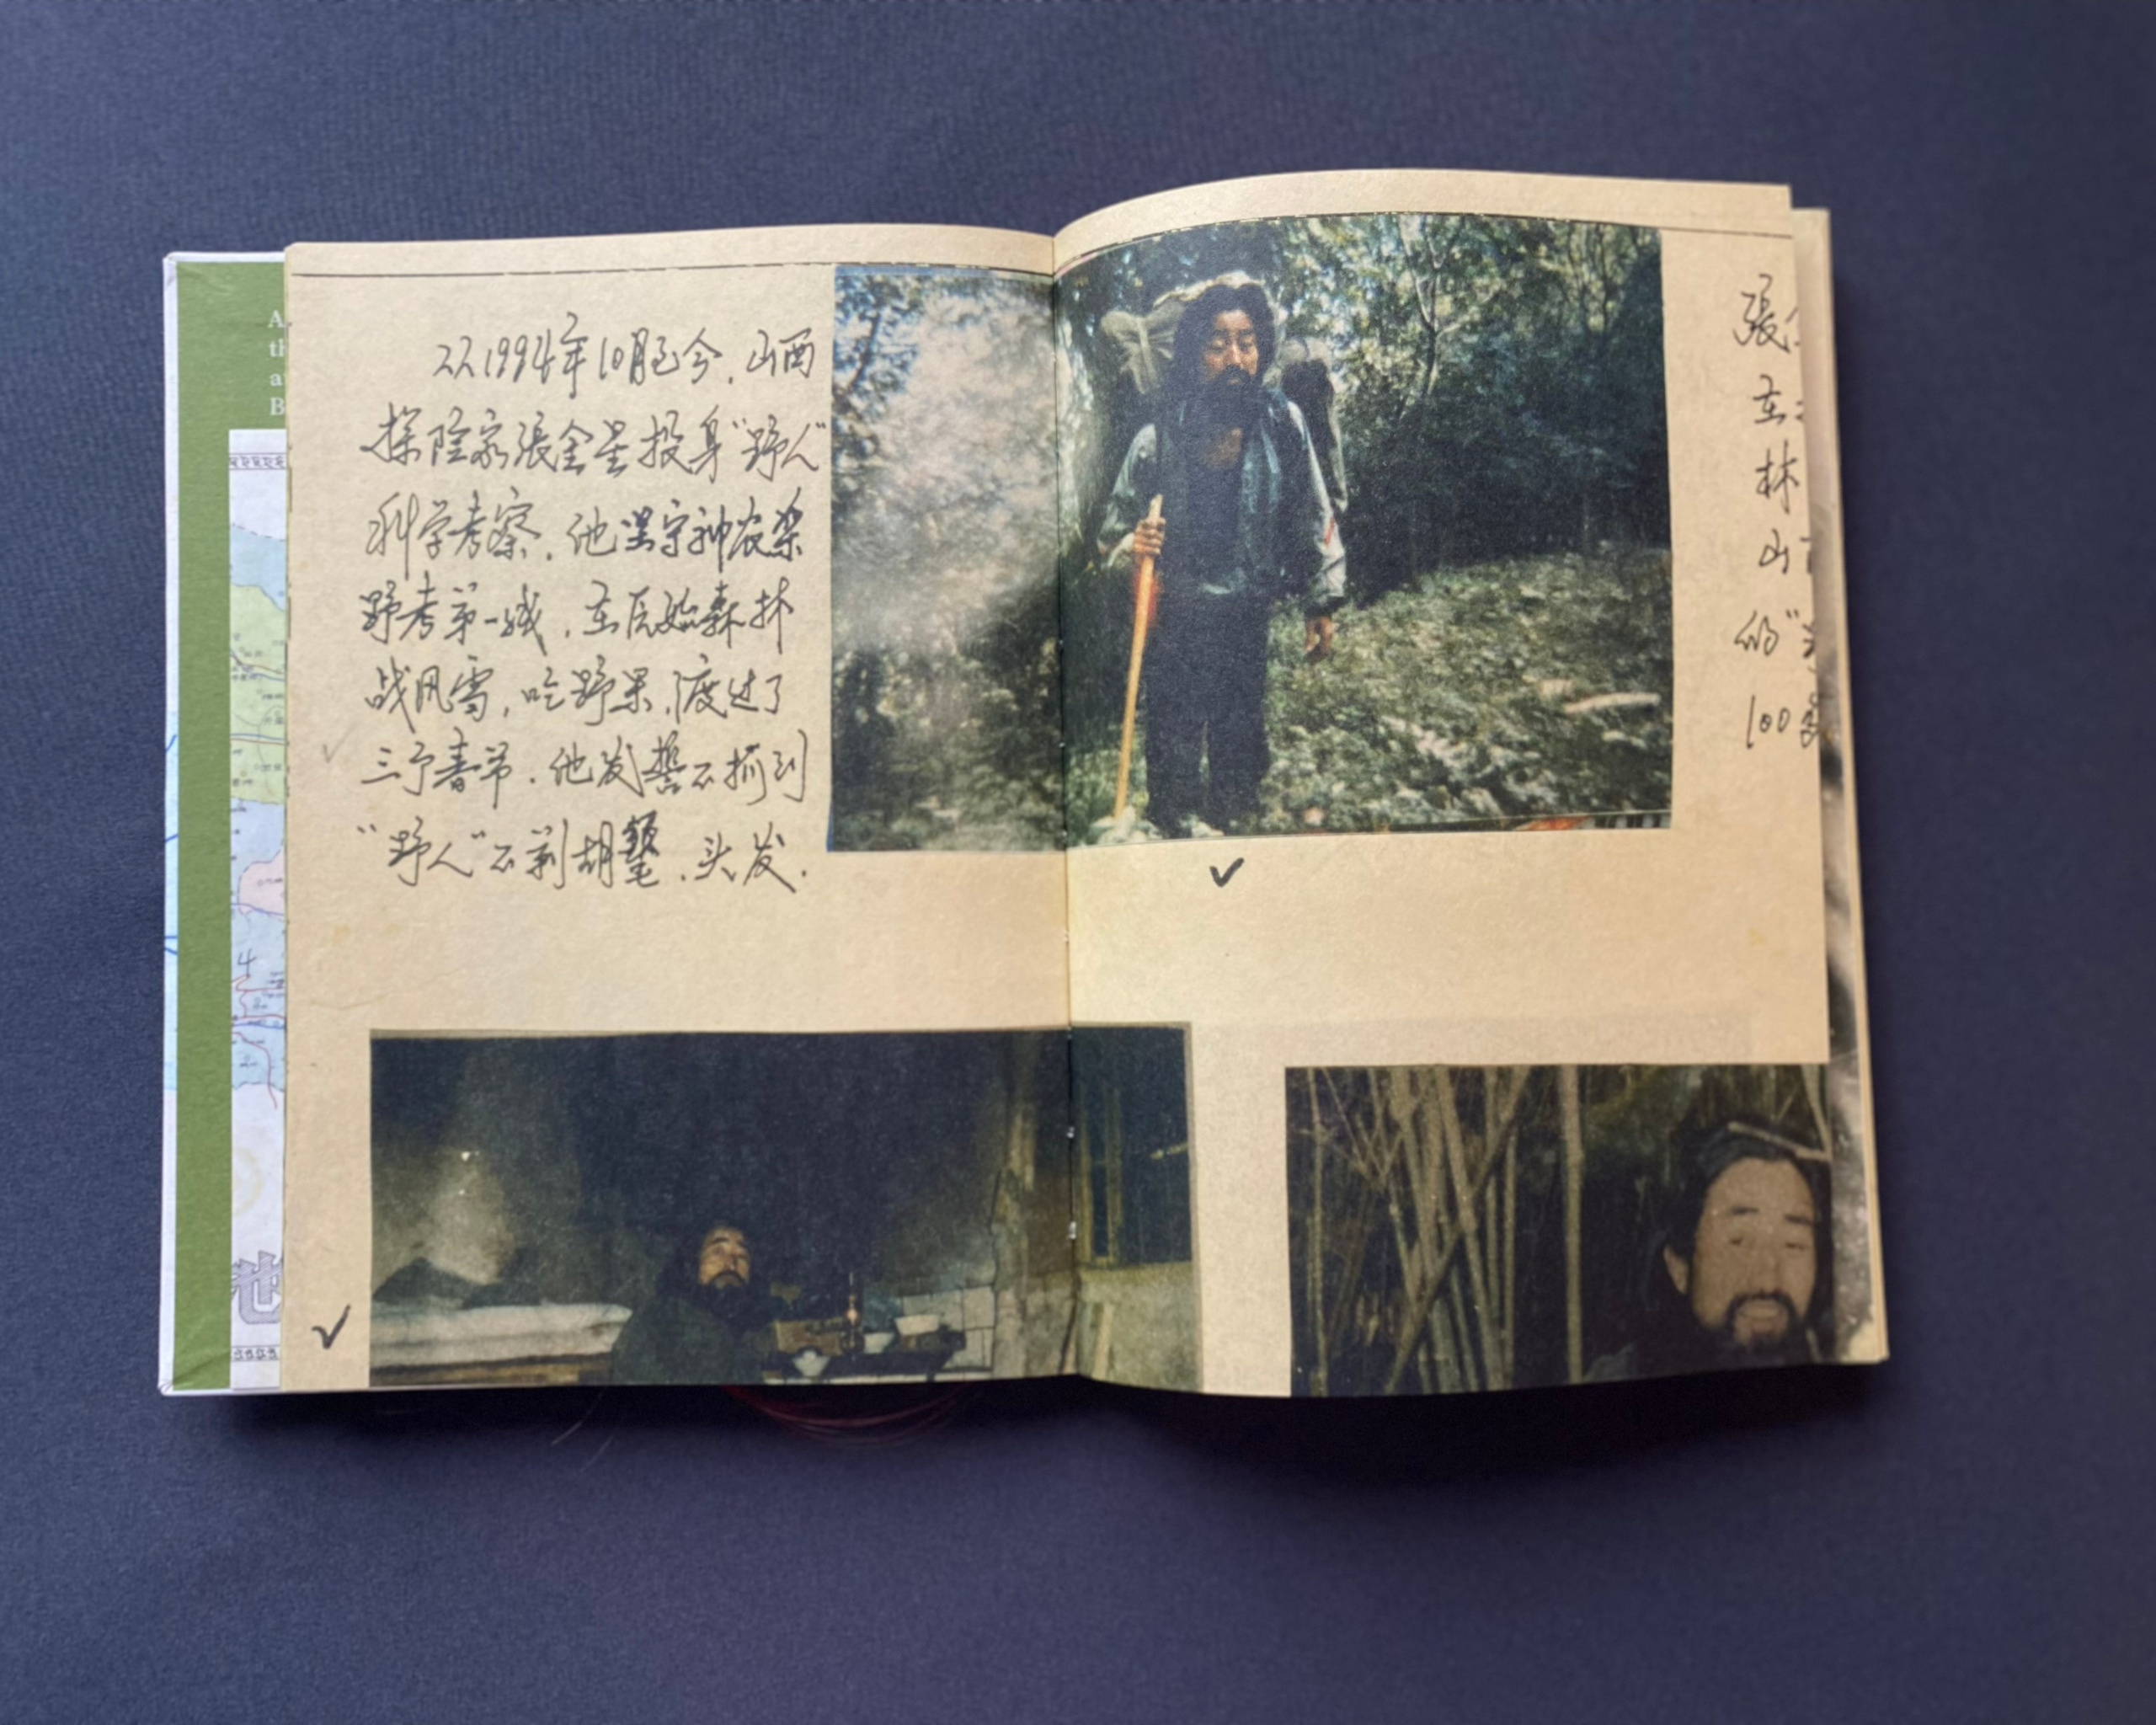 从1994年10月至今，山西
探险家張金星投身“野人”
科学考察．他坚守神农架
野考第一线，在原始森林
战风雪，吃野果，渡过了
三个春节．他发誓不抓到
“野人”不剃胡髦，头发．
張
在
林
山
的“
100多
A
th
a
B